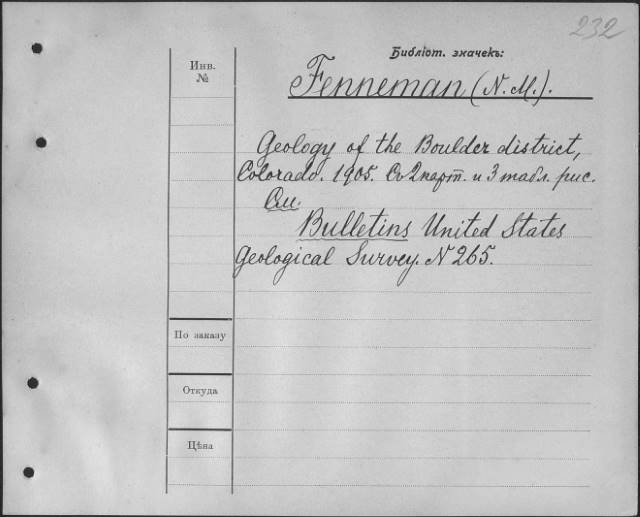 232
Библіот. значекъ:
Инв.
№
Fenneman (N. M.).
Geology of the Boulder district,
Colorado. 1905. Съ 2 карт. и 3 табл. рис.
См.
Bulletins United States
Geological Survey. N 265.
По заказу
Откуда
Цѣна